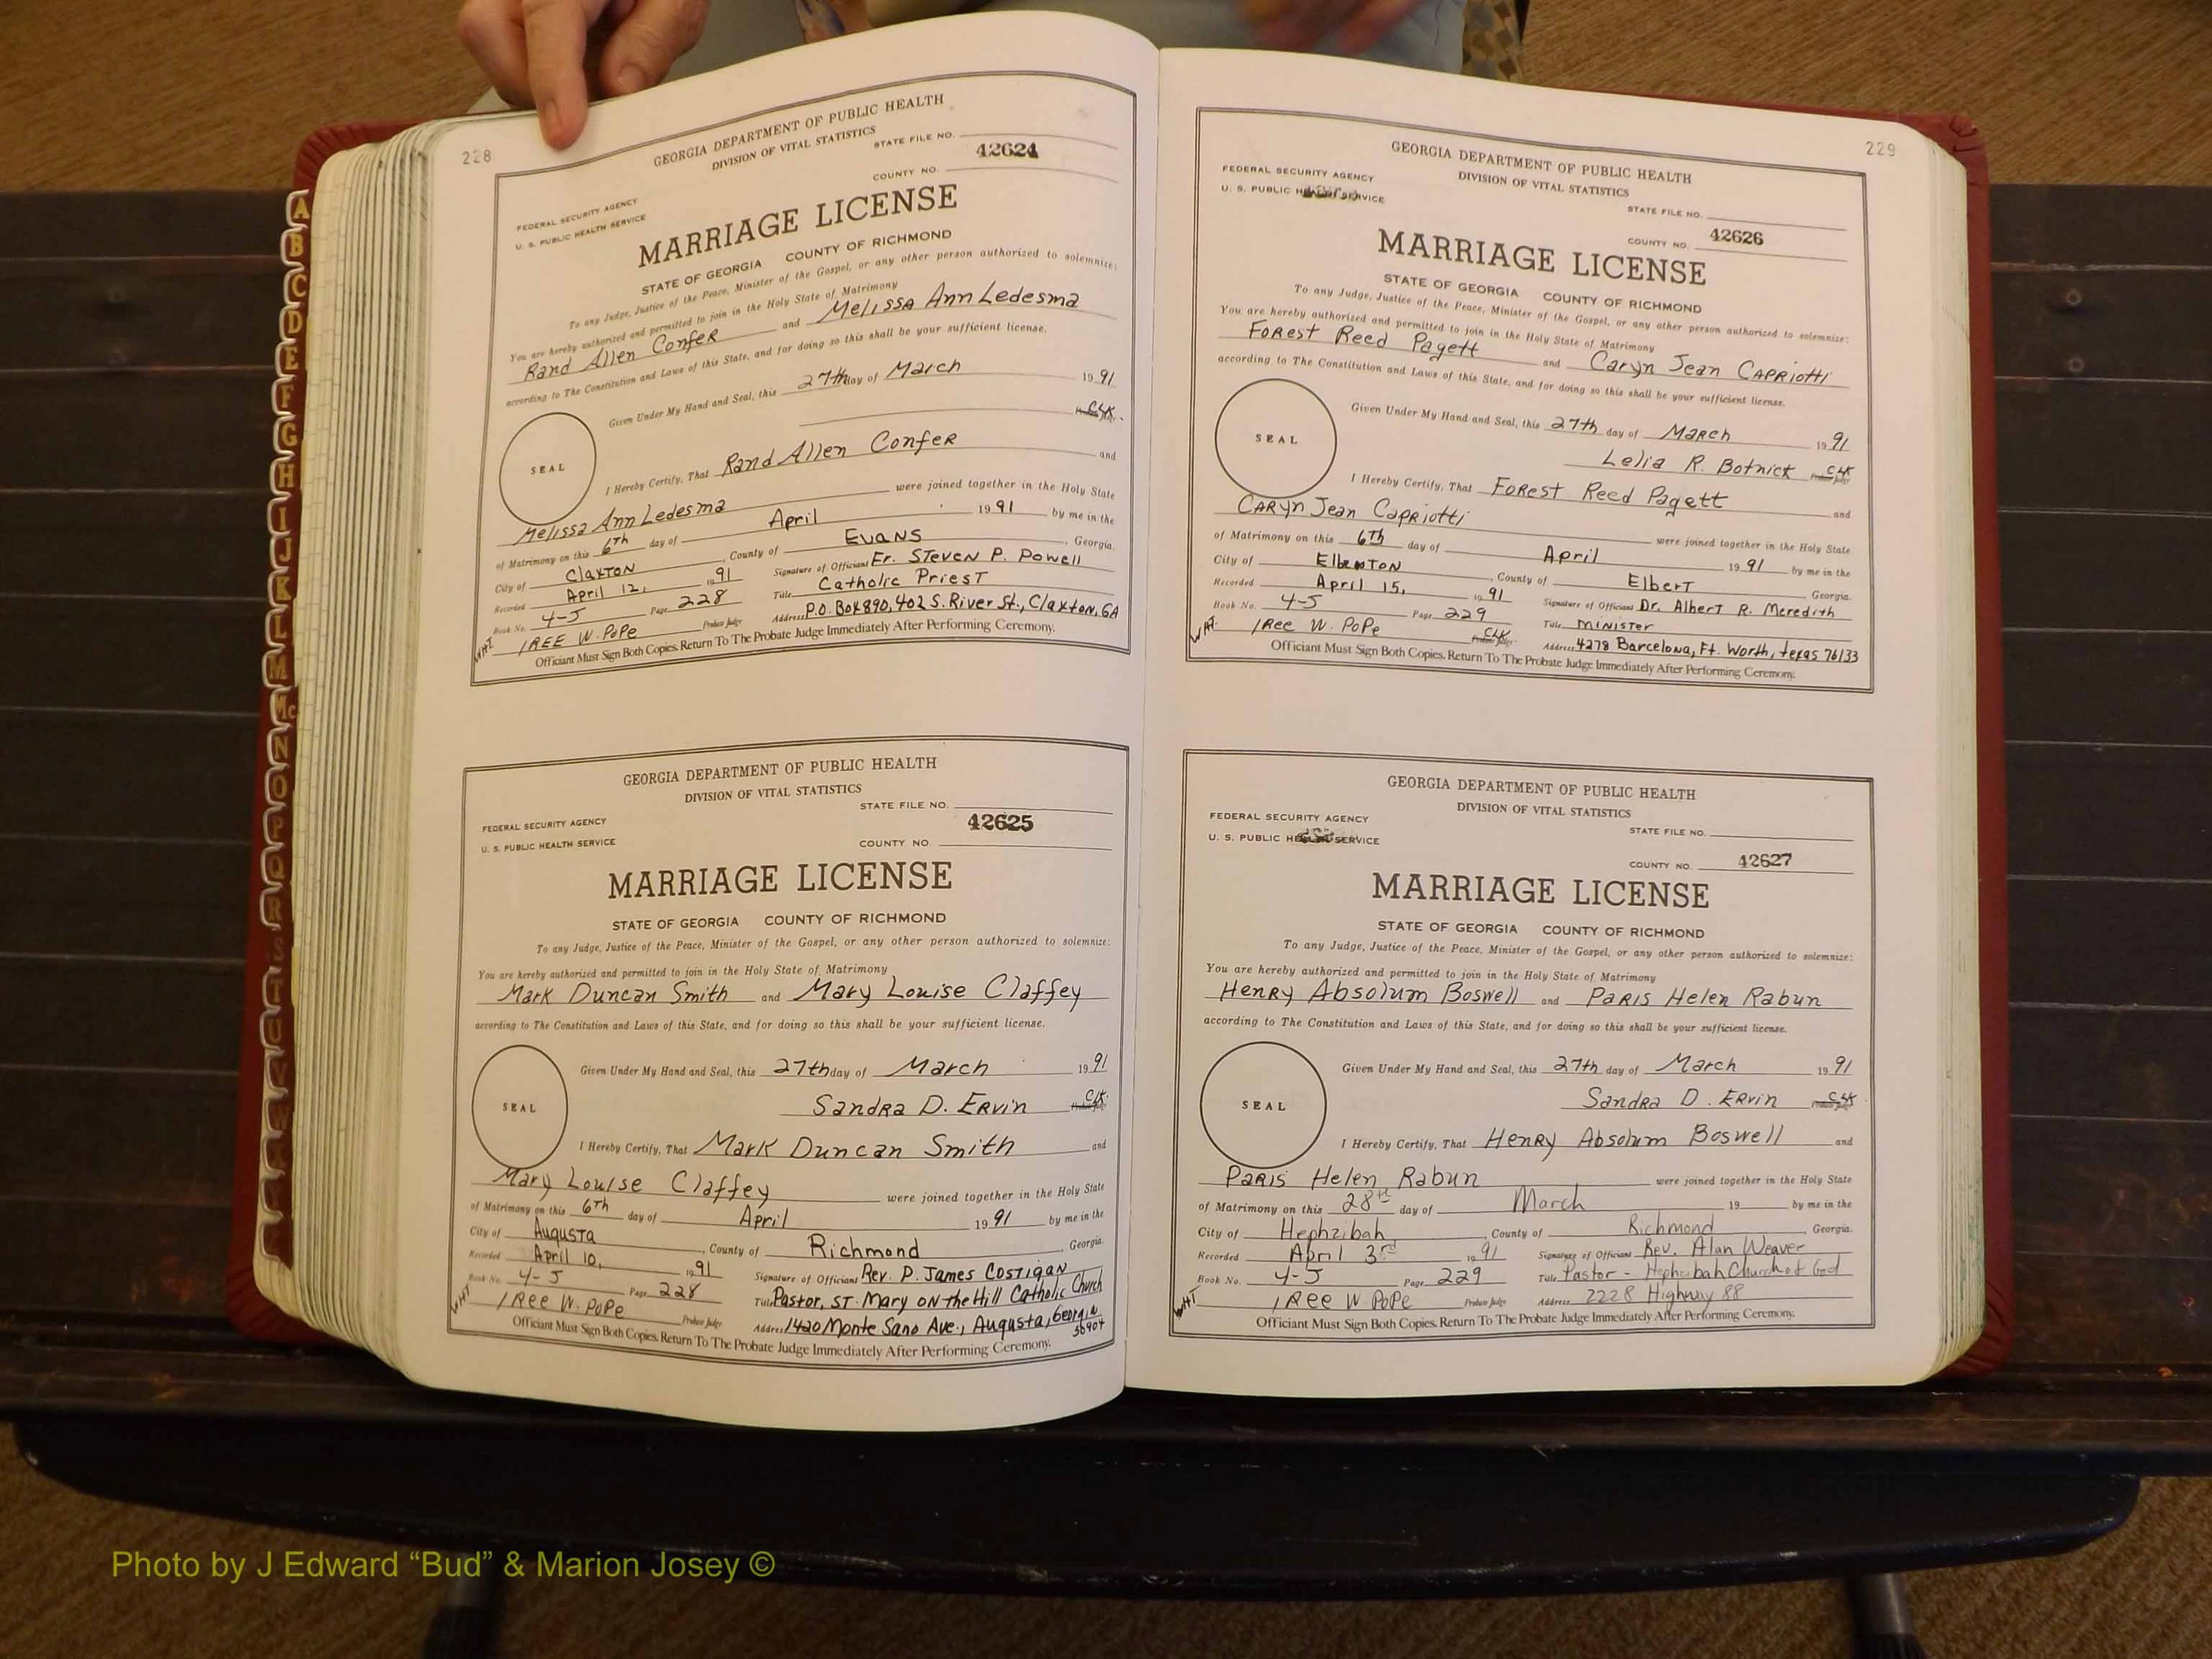 228
GEORGIA DEPARTMENT OF PUBLIC HEALTH
DIVISION OF VITAL STATISTICS
STATE FILE NO.
42624
COUNTY NO.
FEDERAL SECURITY AGENCY
U. S. PUBLIC HEALTH SERVICE
MARRIAGE LICENSE
STATE OF GEORGIA COUNTY OF RICHMOND
To any Judge, Justice of the Peace, Minister of the Gospel, or any other person authorized to solemnize:
You are hereby authorized and permitted to join in the Holy State of Matrimony
Rand Allen Confer and Melissa Ann Ledesma
according to The Constitution and Laws of this State, and for doing so this shall be your sufficient license.
Given Under My Hand and Seal, this 27th day of March 1991
Clk.
SEAL
I Hereby Certify, That Rand Allen Confer and
Melissa Ann Ledesma were joined together in the Holy State
of Matrimony on this 6Th day of April 1991 by me in the
City of Claxton, County of Evans, Georgia.
Recorded April 12, 1991 Signature of Officiant Fr. Steven P. Powell
Book No. 4-J Page 228 Title Catholic Priest
IREE W. POPE Probate Judge Address P.O. Box 890, 402 S. River St., Claxton, GA
WHT
Officiant Must Sign Both Copies. Return To The Probate Judge Immediately After Performing Ceremony.
GEORGIA DEPARTMENT OF PUBLIC HEALTH
DIVISION OF VITAL STATISTICS
STATE FILE NO.
42625
FEDERAL SECURITY AGENCY
U. S. PUBLIC HEALTH SERVICE
COUNTY NO.
MARRIAGE LICENSE
STATE OF GEORGIA COUNTY OF RICHMOND
To any Judge, Justice of the Peace, Minister of the Gospel, or any other person authorized to solemnize:
You are hereby authorized and permitted to join in the Holy State of Matrimony
Mark Duncan Smith and Mary Louise Claffey
according to The Constitution and Laws of this State, and for doing so this shall be your sufficient license.
Given Under My Hand and Seal, this 27th day of March 1991
Sandra D. Ervin Clk.
SEAL
I Hereby Certify, That Mark Duncan Smith and
Mary Louise Claffey were joined together in the Holy State
of Matrimony on this 6Th day of April 1991 by me in the
City of Augusta, County of Richmond, Georgia.
Recorded April 10, 1991 Signature of Officiant Rev. P. James Costigan
Book No. 4-J Page 228 Title Pastor, St. Mary on the Hill Catholic Church
IRee W. Pope Probate Judge Address 1420 Monte Sano Ave., Augusta, Georgia
30904
WHT
Officiant Must Sign Both Copies. Return To The Probate Judge Immediately After Performing Ceremony.
229
GEORGIA DEPARTMENT OF PUBLIC HEALTH
DIVISION OF VITAL STATISTICS
FEDERAL SECURITY AGENCY
U. S. PUBLIC HEALTH SERVICE
STATE FILE NO.
COUNTY NO. 42626
MARRIAGE LICENSE
STATE OF GEORGIA COUNTY OF RICHMOND
To any Judge, Justice of the Peace, Minister of the Gospel, or any other person authorized to solemnize:
You are hereby authorized and permitted to join in the Holy State of Matrimony
Forest Reed Pagett and Caryn Jean Capriotti
according to The Constitution and Laws of this State, and for doing so this shall be your sufficient license.
Given Under My Hand and Seal, this 27th day of March 1991
Lelia R. Botnick Clk
SEAL
I Hereby Certify, That Forest Reed Pagett and
Caryn Jean Capriotti were joined together in the Holy State
of Matrimony on this 6Th day of April 1991 by me in the
City of Elberton, County of Elbert Georgia.
Recorded April 15, 1991 Signature of Officiant Dr. Albert R. Meredith
Book No. 4-J Page 229 Title Minister
IRee W. Pope Clk. Address 4278 Barcelona, Ft. Worth, Texas 76133
WHT.
Officiant Must Sign Both Copies. Return To The Probate Judge Immediately After Performing Ceremony.
GEORGIA DEPARTMENT OF PUBLIC HEALTH
DIVISION OF VITAL STATISTICS
FEDERAL SECURITY AGENCY
U. S. PUBLIC HEALTH SERVICE
STATE FILE NO.
COUNTY NO. 42627
MARRIAGE LICENSE
STATE OF GEORGIA COUNTY OF RICHMOND
To any Judge, Justice of the Peace, Minister of the Gospel, or any other person authorized to solemnize:
You are hereby authorized and permitted to join in the Holy State of Matrimony
Henry Absolum Boswell and Paris Helen Rabun
according to The Constitution and Laws of this State, and for doing so this shall be your sufficient license.
Given Under My Hand and Seal, this 27th day of March 1991
Sandra D. Ervin Clk
SEAL
I Hereby Certify, That Henry Absolum Boswell and
Paris Helen Rabun were joined together in the Holy State
of Matrimony on this 28th day of March 19 by me in the
City of Hephzibah, County of Richmond, Georgia.
Recorded April 3rd 1991 Signature of Officiant Rev. Alan Weaver
Book No. 4-J Page 229 Title Pastor - Hephzibah Church of God
IRee W Pope Probate Judge Address 2228 Highway 88
WHT
Officiant Must Sign Both Copies. Return To The Probate Judge Immediately After Performing Ceremony.
A
B
C
D
E
F
G
H
I
J
K
L
M
Mc
N
O
P
Q
R
S
T
U
Photo by J Edward “Bud” & Marion Josey ©